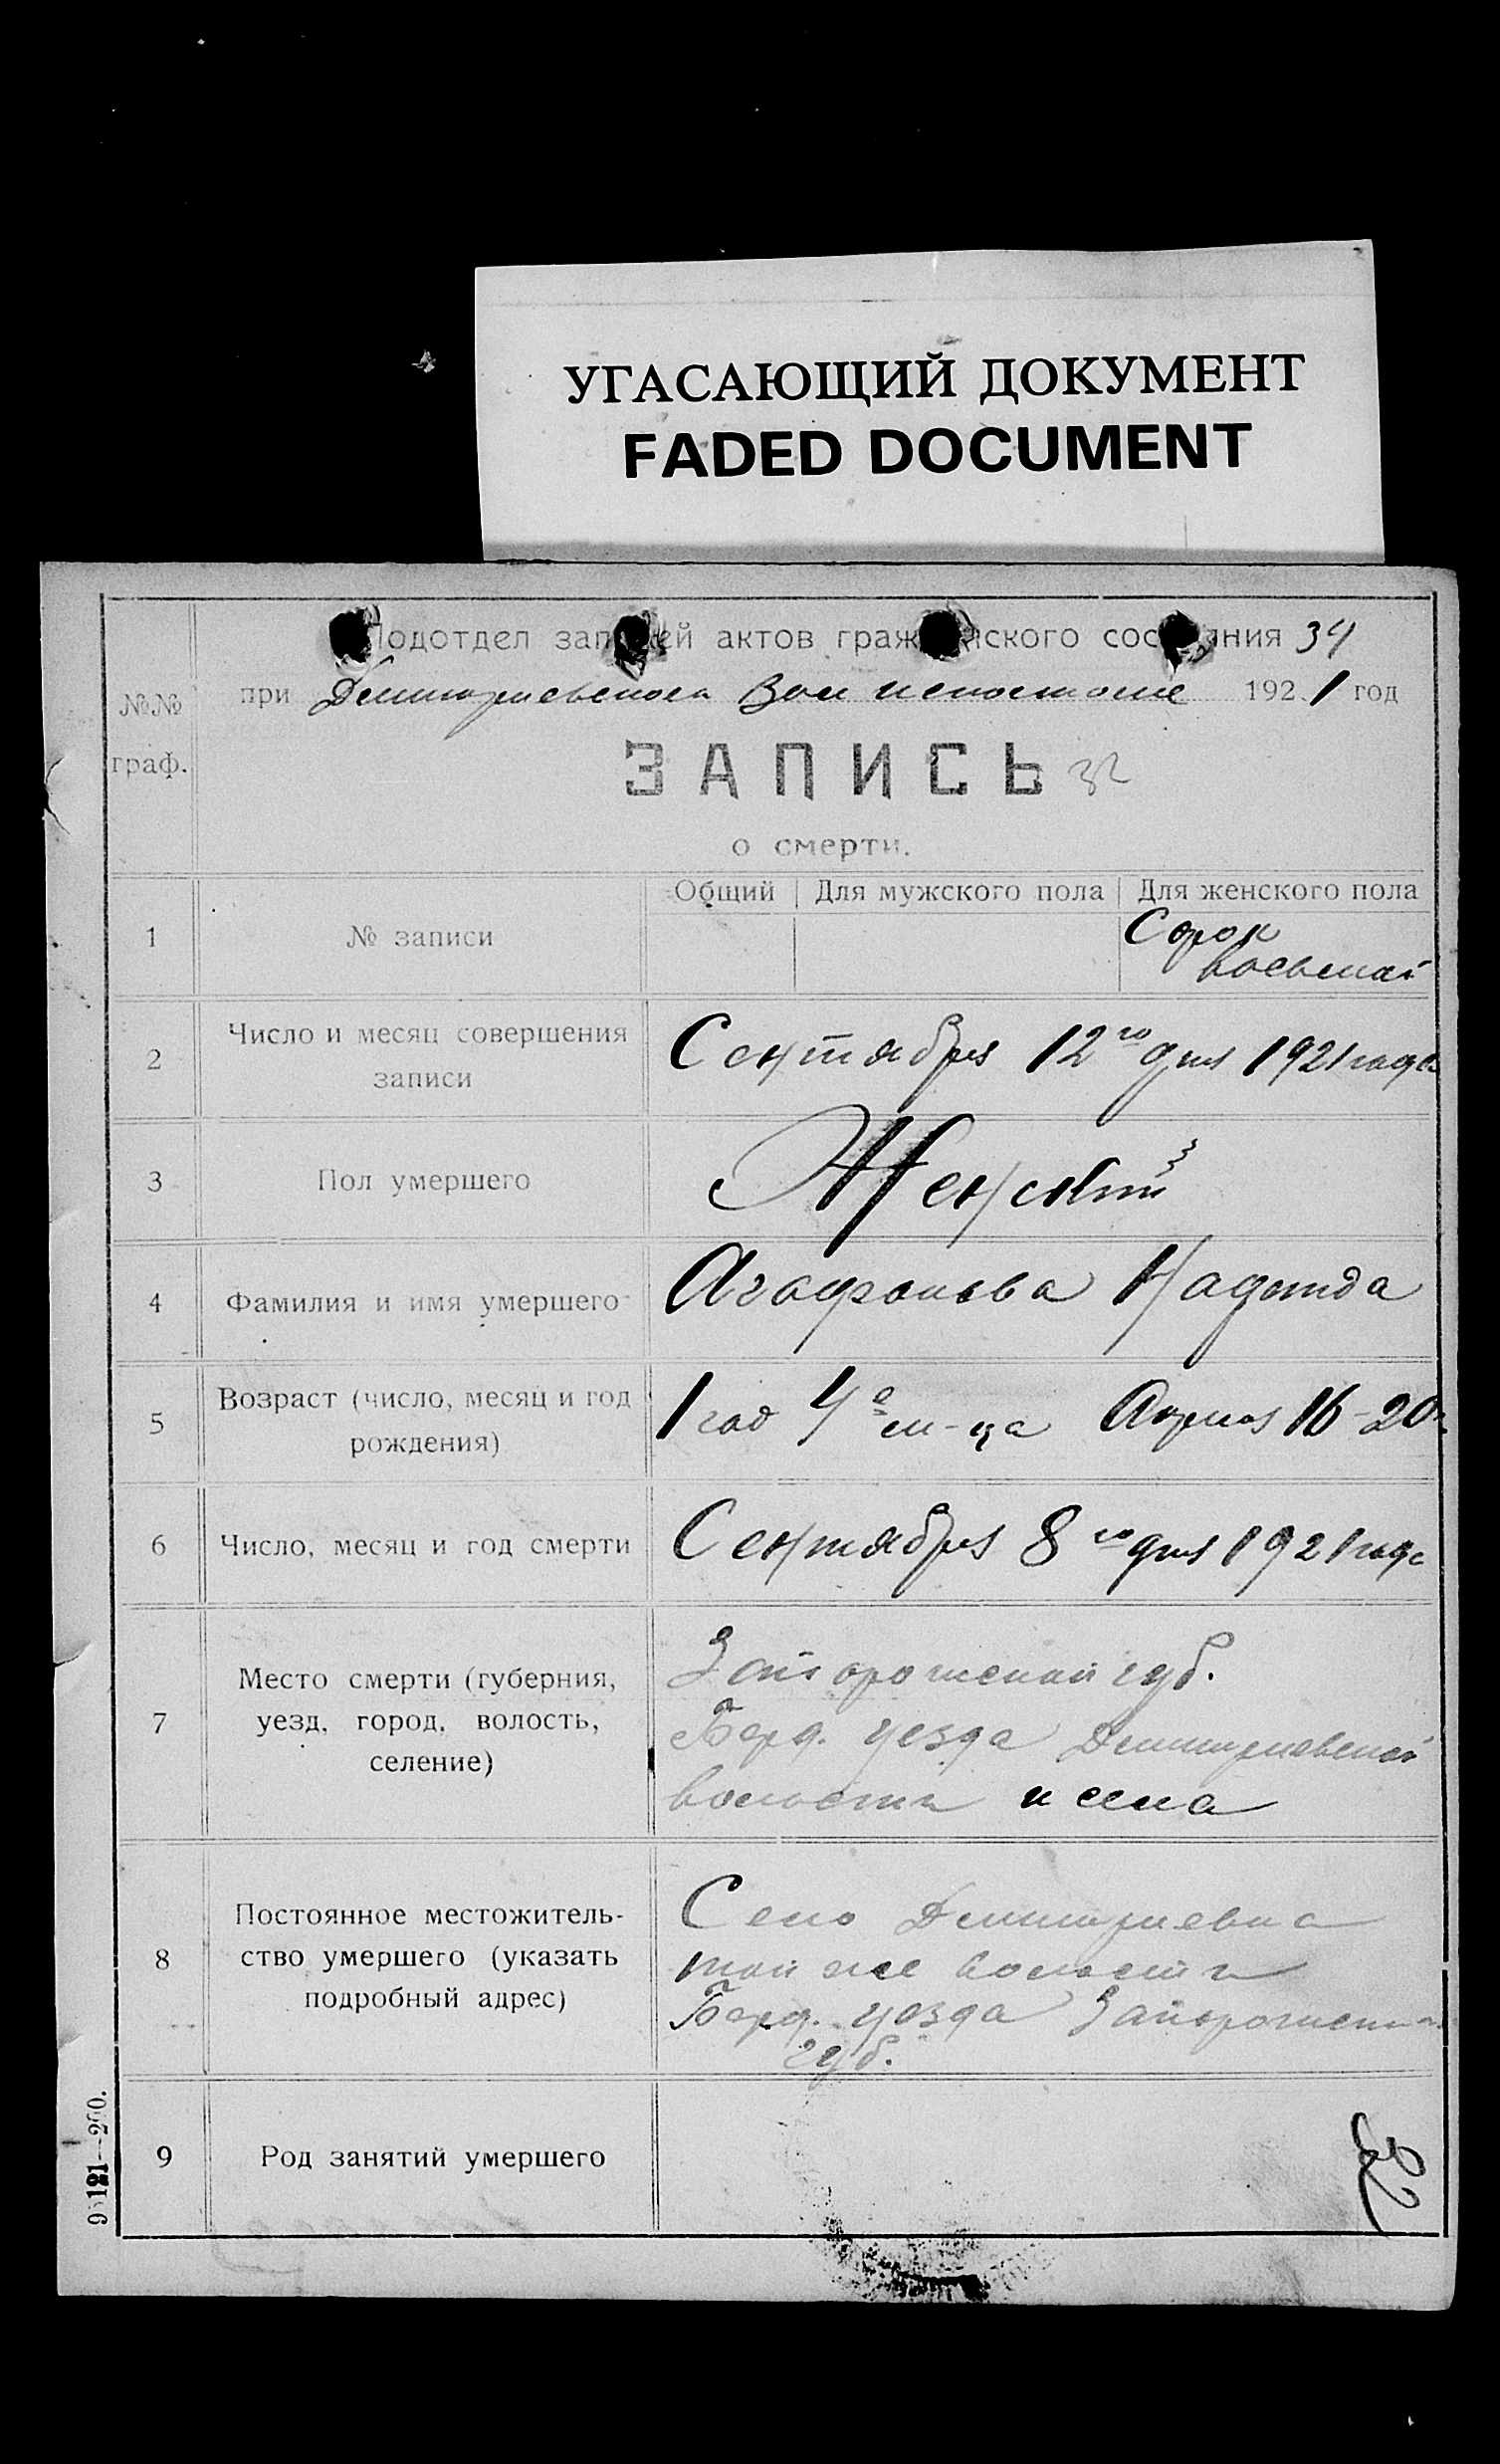 УГАСАЮЩИЙ ДОКУМЕНТ
FADED DOCUMENT
Подотдел записей актов гражданского состояния 34
№№ при Дмитриевского Вол исполкоме 1921 год
граф.
ЗАПИСЬ 32
о смерти.
Общий Для мужского пола Для женского пола
1 № записи Сорок
восьмой
2 Число и месяц совершения записи Сентября 12го дня 1921 года
3 Пол умершего Женский
4 Фамилия и имя умершего Агафонова Надежда
5 Возраст (число, месяц и год рождения) 1 год 4е м-ца Апреля 16-20
6 Число, месяц и год смерти Сентября 8го дня 1921 года
7 Место смерти (губерния, уезд, город, волость, селение) Запорожской губ.
Берд. уезда Дмитриевской
волости и села
8 Постоянное местожительство умершего (указать подробный адрес) Село Дмитриевка
той же волости
Берд. уезда Запорожской
губ.
9 Род занятий умершего